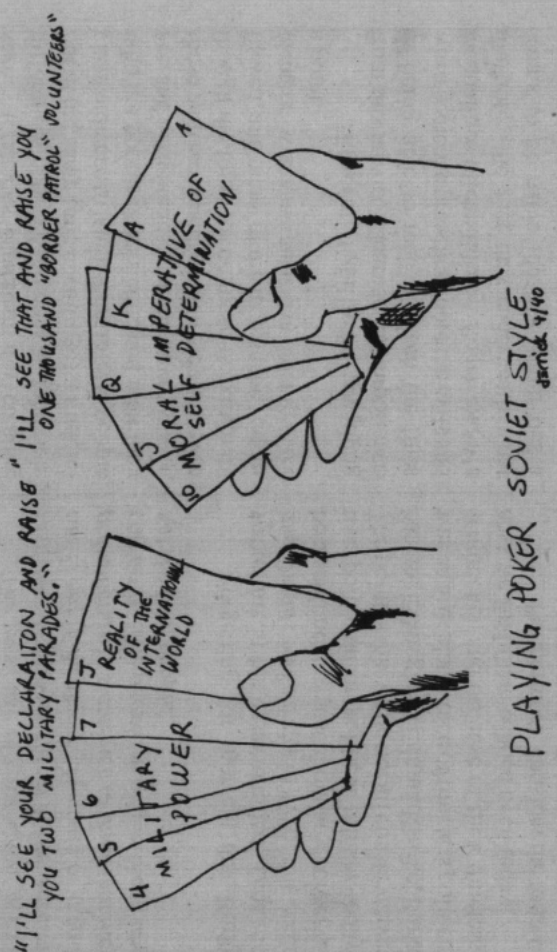 "I'LL SEE YOUR DECLARAITON AND RAISE
YOU TWO MILITARY PARADES."
"I'LL SEE THAT AND RAISE YOU
ONE THOUSAND "BORDER PATROL" VOLUNTEERS"
4
5
6
7
J
MILITARY
POWER
REALITY
OF THE
INTERNATIONAL
WORLD
10
J
Q
K
A
A
MORAL IMPERATIVE OF
SELF DETERMINATION
PLAYING POKER SOVIET STYLE
4/90